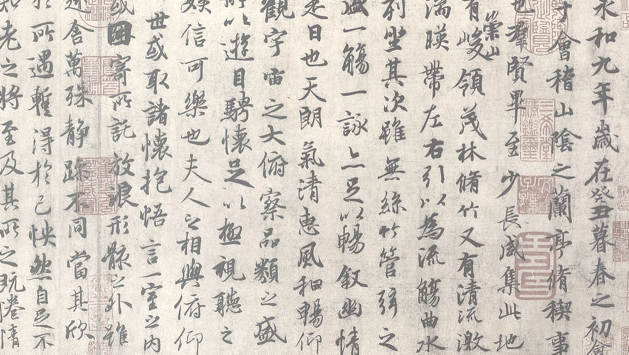 永和九年歲在癸丑暮春之初會
于會稽山陰之蘭亭脩稧事
也羣賢畢至少長咸集此地
有崇山峻領茂林脩竹又有清流激
湍暎帶左右引以為流觴曲水
列坐其次雖無絲竹管弦之
盛一觴一詠亦足以暢敘幽情
是日也天朗氣清惠風和暢仰
觀宇宙之大俯察品類之盛
所以遊目騁懷足以極視聽之
娛信可樂也夫人之相與俯仰
世或取諸懷抱悟言一室之內
或因寄所託放浪形骸之外雖
舍萬殊靜躁不同當其欣
於所遇蹔得於己怏然自足不
知老之將至及其所之既惓情